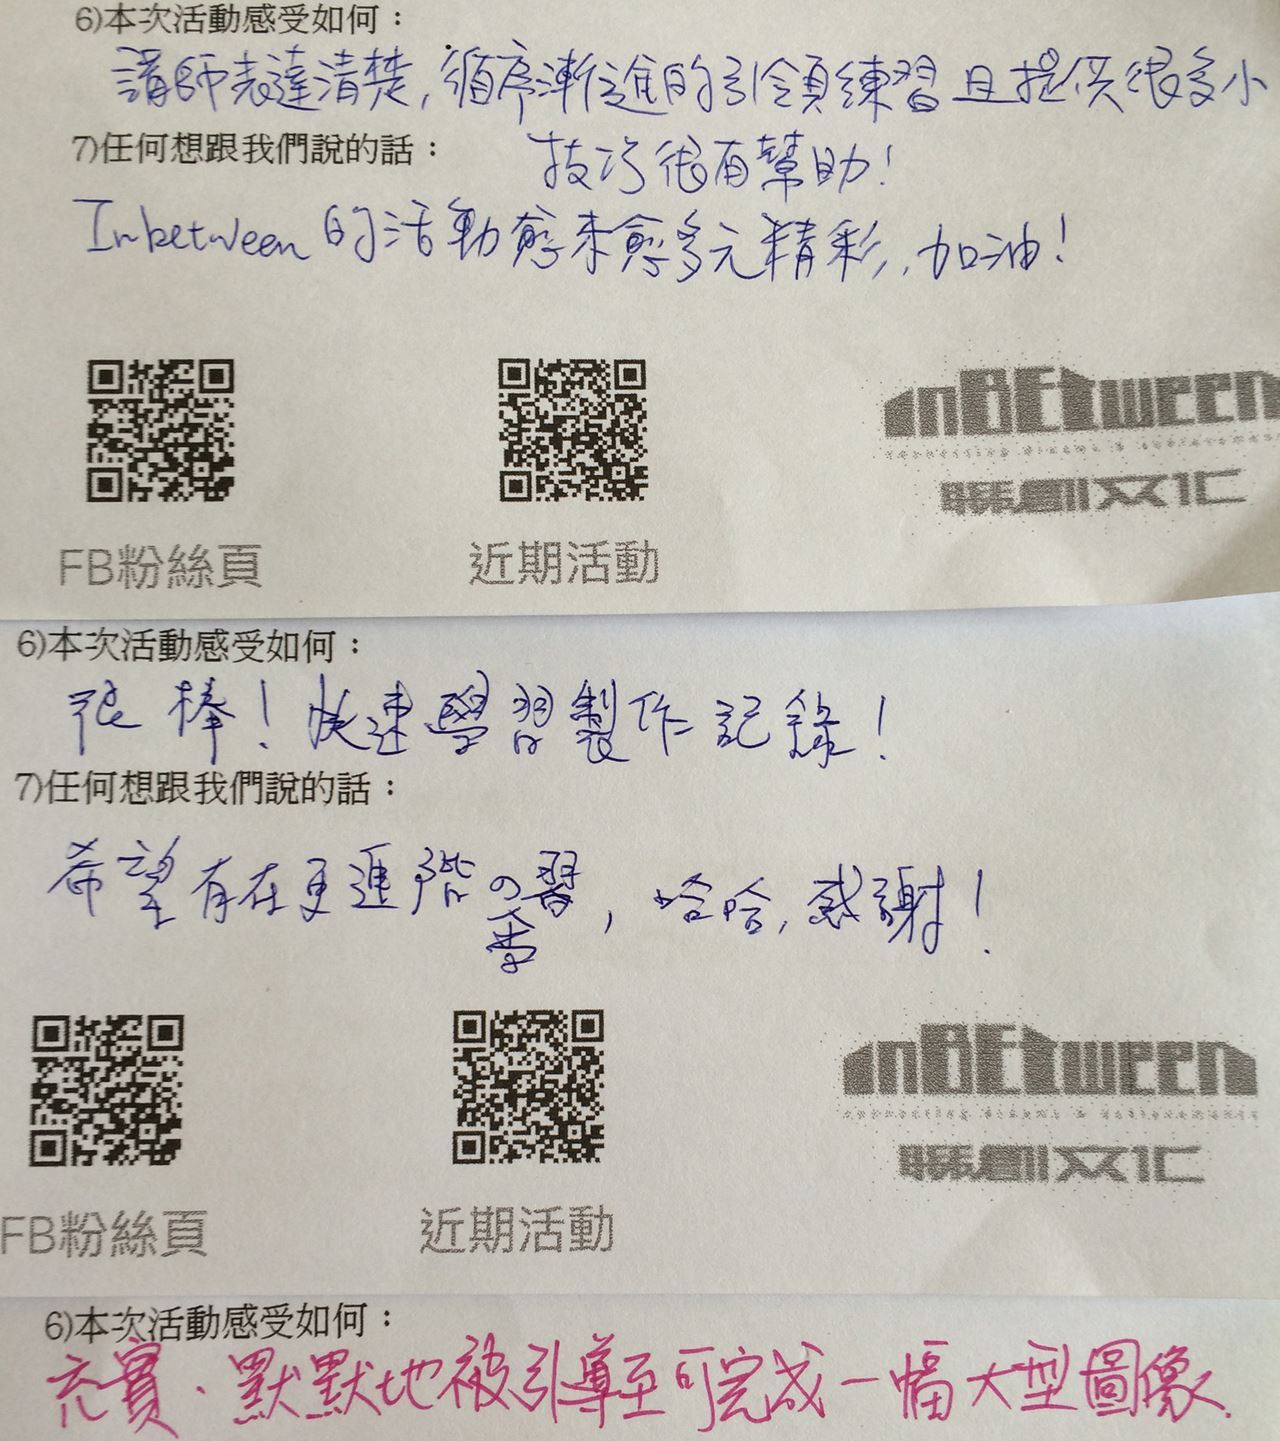 6)本次活動感受如何：
講師表達清楚,循序漸進的引領練習且提供很多小
技巧很有幫助!
7)任何想跟我們說的話：
Inbetween 的活動愈來愈多元精彩,加油!
inBEtween
connecting dreams & achievements
聯創文化
FB粉絲頁
近期活動
6)本次活動感受如何：
很棒! 快速學習製作記錄!
7)任何想跟我們說的話：
希望有在更進階の學習, 哈哈, 感謝!
inBEtween
connecting dreams & achievements
聯創文化
FB粉絲頁
近期活動
6)本次活動感受如何：
充實、默默地被引導至可完成一幅大型圖像.